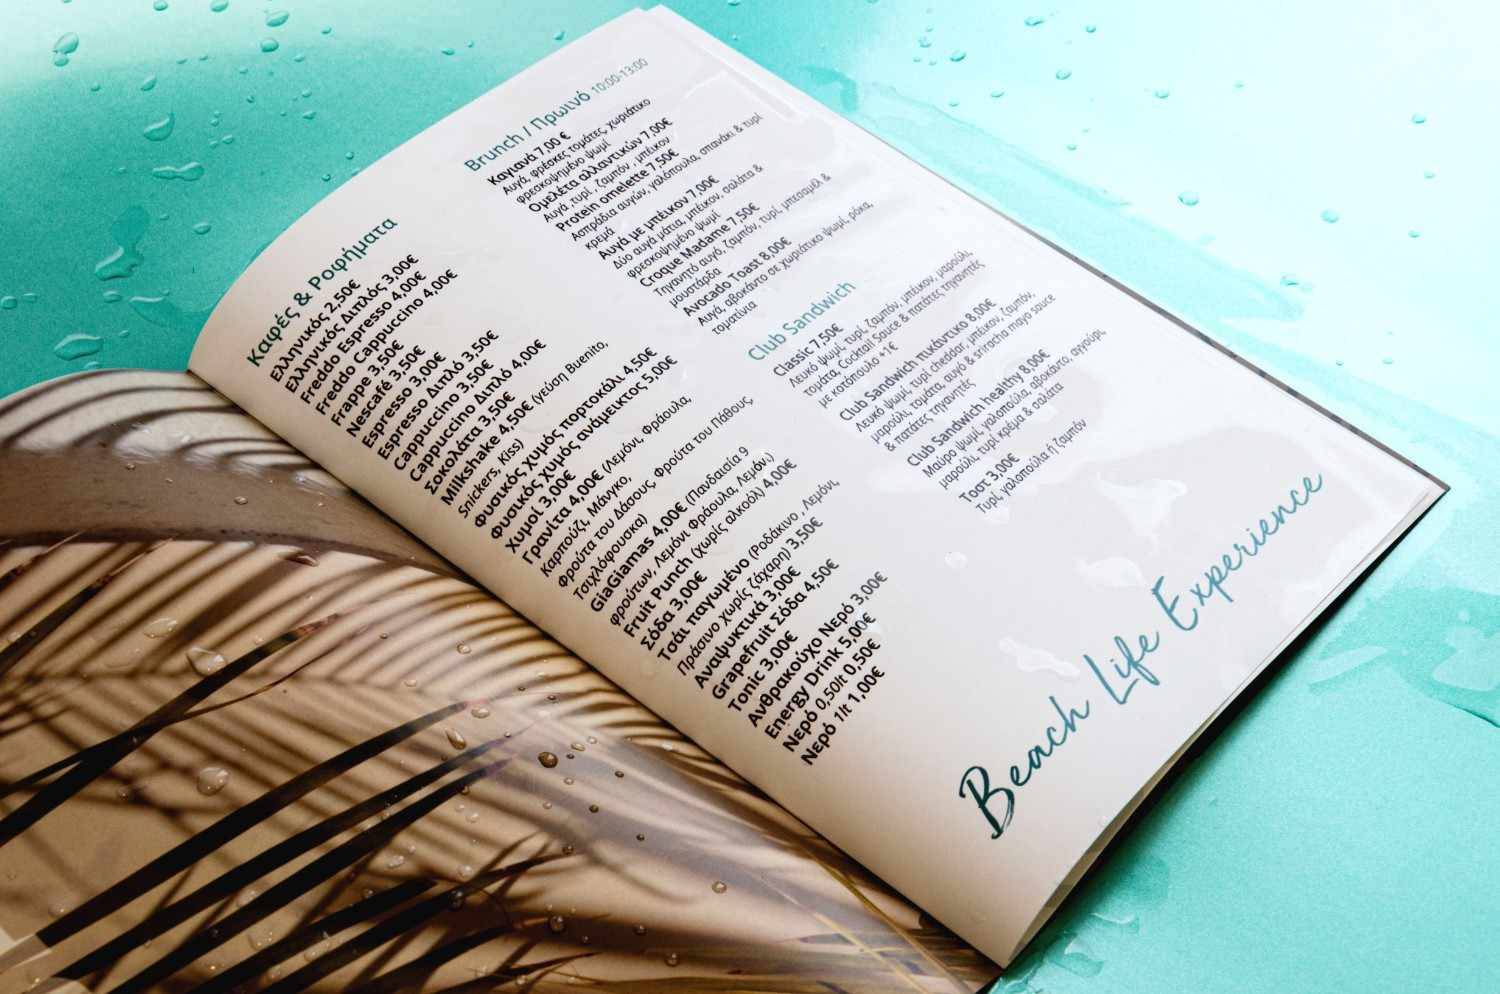 Καφές & Ροφήματα
Ελληνικός 2,50€
Ελληνικός Διπλός 3,00€
Freddo Espresso 4,00€
Freddo Cappuccino 4,00€
Frappe 3,50€
Nescafé 3,50€
Espresso 3,00€
Espresso Διπλό 3,50€
Cappuccino 3,50€
Cappuccino Διπλό 4,00€
Σοκολάτα 3,50€
Milkshake 4,50€ (γεύση Buenito,
Snickers, Kiss)
Φυσικός Χυμός πορτοκάλι 4,50€
Φυσικός Χυμός ανάμεικτος 5,00€
Χυμοί 3,00€
Γρανίτα 4,00€ (Λεμόνι, Φράουλα,
Καρπούζι, Μάνγκο,
Φρούτα του Δάσους, Φρούτα του Πάθους,
Τσιχλόφουσκα)
GiaGiamas 4,00€ (Πανδαισία 9
φρούτων, Λεμόνι Φράουλα, Λεμόνι)
Fruit Punch (χωρίς αλκοόλ) 4,00€
Σόδα 3,00€
Τσάι παγωμένο (Ροδάκινο , Λεμόνι,
Πράσινο χωρίς ζάχαρη) 3,50€
Αναψυκτικά 3,00€
Grapefruit Σόδα 4,50€
Tonic 3,00€
Ανθρακούχο Νερό 3,00€
Energy Drink 5,00€
Νερό 0,50lt 0,50€
Νερό 1lt 1,00€
Brunch / Πρωινό 10:00-13:00
Καγιανά 7,00 €
Αυγά, φρέσκες τομάτες, χωριάτικο
φρεσκοψημένο ψωμί
Ομελέτα αλλαντικών 7,00€
Αυγά, τυρί, ζαμπόν , μπέικον
Protein omelette 7,50€
Ασπράδια αυγών, γαλόπουλα, σπανάκι & τυρί
κρεμά
Αυγά με μπέικον 7,00€
Δύο αυγά μάτια, μπέικον, σαλάτα &
φρεσκοψημένο ψωμί
Croque Madame 7,50€
Τηγανητό αυγό, ζαμπόν, τυρί, μπεσαμέλ &
μουστάρδα
Avocado Toast 8,00€
Αυγά, αβοκάντο σε χωριάτικο ψωμί, ρόκα,
τοματίνια
Club Sandwich
Classic 7,50€
Λευκό ψωμί, τυρί, ζαμπόν, μπέικον, μαρούλι,
τομάτα, Cocktail Sauce & πατάτες τηγανητές
με κοτόπουλο +1€
Club Sandwich πικάντικο 8,00€
Λευκό ψωμί, τυρί cheddar, μπέικον, ζαμπόν,
μαρούλι, τομάτα, αυγό & sriracha mayo sauce
& πατάτες τηγανητές
Club Sandwich healthy 8,00€
Μαύρο ψωμί, γαλοπούλα, αβοκάντο, αγγούρι,
μαρούλι, τυρί κρέμα & σαλάτα
Τοστ 3,00€
Τυρί, γαλοπούλα ή ζαμπόν
Beach Life Experience